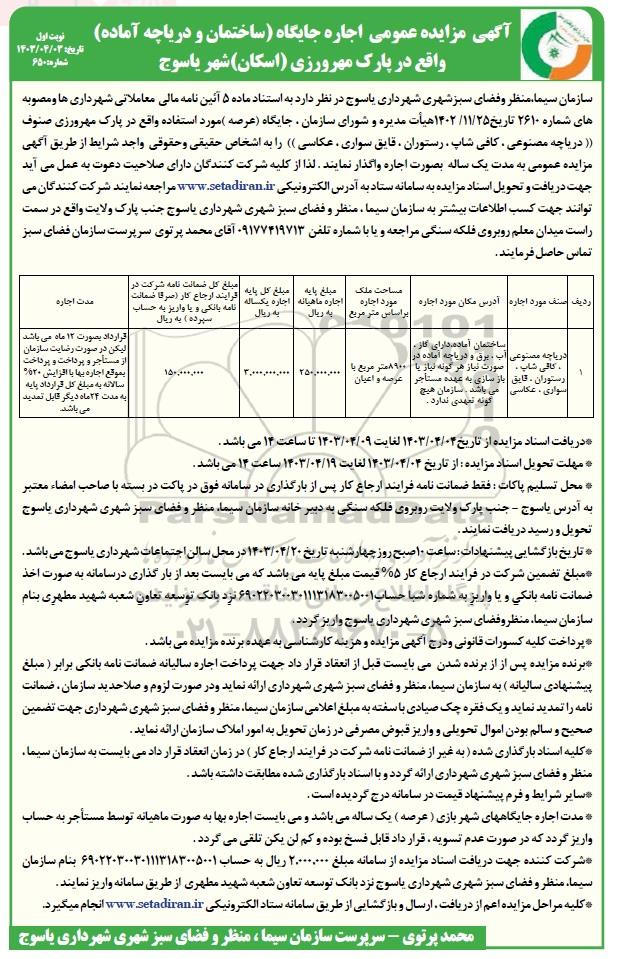 آگهی مزایده عمومی اجاره جایگاه (ساختمان و دریاچه آماده)
واقع در پارک مهرورزی (اسکان)شهر یاسوج
نوبت اول
تاریخ: ۱۴۰۳/۰۴/۰۳
شماره: ۶۵۰
سازمان سیما،منظر وفضای سبزشهری شهرداری یاسوج در نظر دارد به استناد ماده ۵ آئین نامه مالی معاملاتی شهرداری ها ومصوبه
های شماره ۲۶۱۰ تاریخ۱۴۰۲/۱۱/۲۵هیأت مدیره و شورای سازمان ، جایگاه (عرصه )مورد استفاده واقع در پارک مهرورزی صنوف
(( دریاچه مصنوعی ، کافی شاپ ، رستوران ، قایق سواری ، عکاسی )) را به اشخاص حقیقی وحقوقی واجد شرایط از طریق آگهی
مزایده عمومی به مدت یک ساله بصورت اجاره واگذار نمایند . لذا از کلیه شرکت کنندگان دارای صلاحیت دعوت به عمل می آید
جهت دریافت و تحویل اسناد مزایده به سامانه ستاد به آدرس الکترونیکی www.setadiran.ir مراجعه نمایند شرکت کنندگان می
توانند جهت کسب اطلاعات بیشتر به سازمان سیما ، منظر و فضای سبز شهری شهرداری یاسوج جنب پارک ولایت واقع در سمت
راست میدان معلم روبروی فلکه سنگی مراجعه و یا با شماره تلفن ۰۹۱۷۷۴۱۹۷۱۳ آقای محمد پرتوی سرپرست سازمان فضای سبز
تماس حاصل فرمایند.
ردیف
صنف مورد اجاره
آدرس مکان مورد اجاره
مساحت ملک مورد اجاره براساس متر مربع
مبلغ پایه اجاره ماهیانه به ریال
مبلغ کل پایه اجاره یکساله به ریال
مبلغ کل ضمانت نامه شرکت در فرایند ارجاع کار (صرفا ضمانت نامه بانکی و یا واریز به حساب سپرده ) به ریال
مدت اجاره
۱
دریاچه مصنوعی ، کافی شاپ ، رستوران ، قایق سواری ، عکاسی
ساختمان آماده،دارای گاز ، آب ، برق و دریاچه آماده در صورت نیاز هر گونه نیاز یا باز سازی به عهده مستأجر می باشد . سازمان هیچ گونه تعهدی ندارد .
۸۹۰۰متر مربع با عرصه و اعیان
۲۵۰,۰۰۰,۰۰۰
۳,۰۰۰,۰۰۰,۰۰۰
۱۵۰,۰۰۰,۰۰۰
قرارداد بصورت ۱۲ ماه می باشد لیکن در صورت رضایت سازمان از مستأجر و پرداخت و پرداخت بموقع اجاره بها با افزایش ۲۰% سالانه به مبلغ کل قرارداد پایه به مدت ۲۴ماه دیگر قابل تمدید می باشد.
*دریافت اسناد مزایده از تاریخ۱۴۰۳/۰۴/۰۴ لغایت ۱۴۰۳/۰۴/۰۹ تا ساعت ۱۴ می باشد .
* مهلت تحویل اسناد مزایده : از تاریخ ۱۴۰۳/۰۴/۰۴ لغایت ۱۴۰۳/۰۴/۱۹ ساعت ۱۴ می باشد .
* محل تسلیم پاکات : فقط ضمانت نامه فرایند ارجاع کار پس از بارگذاری در سامانه فوق در پاکت در بسته با صاحب امضاء معتبر
به آدرس یاسوج - جنب پارک ولایت روبروی فلکه سنگی به دبیر خانه سازمان سیما، منظر و فضای سبز شهری شهرداری یاسوج
تحویل و رسید دریافت نمایند.
* تاریخ بازگشایی پیشنهادات : ساعت ۱۰صبح روز چهارشنبه تاریخ ۱۴۰۳/۰۴/۲۰ در محل سالن اجتماعات شهرداری یاسوج می باشد.
*مبلغ تضمین شرکت در فرایند ارجاع کار ۵% قیمت مبلغ پایه می باشد که می بایست بعد از بار گذاری درسامانه به صورت اخذ
ضمانت نامه بانکی و یا واریز به شماره شبا حساب۶۹۰۲۲۰۳۰۰۳۰۱۱۱۳۱۸۳۰۰۵۰۰۱ نزد بانک توسعه تعاون شعبه شهید مطهری بنام
سازمان سیما، منظروفضای سبز شهری شهرداری یاسوج واریز گردد.
*پرداخت کلیه کسورات قانونی ودرج آگهی مزایده و هزینه کارشناسی به عهده برنده مزایده می باشد .
*برنده مزایده پس از از برنده شدن می بایست قبل از انعقاد قرار داد جهت پرداخت اجاره سالیانه ضمانت نامه بانکی برابر ( مبلغ
پیشنهادی سالیانه ) به سازمان سیما، منظر و فضای سبز شهری شهرداری ارائه نماید ودر صورت لزوم و صلاحدید سازمان ، ضمانت
نامه را تمدید نماید و یک فقره چک صیادی یا سفته به مبلغ اعلامی سازمان سیما، منظر و فضای سبز شهری شهرداری جهت تضمین
صحیح و سالم بودن اموال تحویلی و واریز قبوض مصرفی در زمان تحویل به امور املاک سازمان ارائه نماید .
*کلیه اسناد بارگذاری شده ( به غیر از ضمانت نامه شرکت در فرایند ارجاع کار ) در زمان انعقاد قرار داد می بایست به سازمان سیما ،
منظر و فضای سبز شهری شهرداری ارائه گردد و با اسناد بارگذاری شده مطابقت داشته باشد .
*سایر شرایط و فرم پیشنهاد قیمت در سامانه درج گردیده است .
* مدت اجاره جایگاههای شهر بازی ( عرصه ) یک ساله می باشد و می بایست اجاره بها به صورت ماهیانه توسط مستأجر به حساب
واریز گردد که در صورت عدم تسویه ، قرار داد قابل فسخ بوده و کم لن یکن تلقی می گردد .
*شرکت کننده جهت دریافت اسناد مزایده از سامانه مبلغ ۲,۰۰۰,۰۰۰ ریال به حساب ۶۹۰۲۲۰۳۰۰۳۰۱۱۱۳۱۸۳۰۰۵۰۰۱ بنام سازمان
سیما، منظر و فضای سبز شهری شهرداری یاسوج نزد بانک توسعه تعاون شعبه شهید مطهری از طریق سامانه واریز نمایند .
*کلیه مراحل مزایده اعم از دریافت ، ارسال و بازگشایی از طریق سامانه ستاد الکترونیکی www.setadiran.ir انجام میگیرد.
محمد پرتوی – سرپرست سازمان سیما ، منظر و فضای سبز شهری شهرداری یاسوج
ParsNamadData
۰۲۱-۸۸۳۴۹۶۷۰-۵